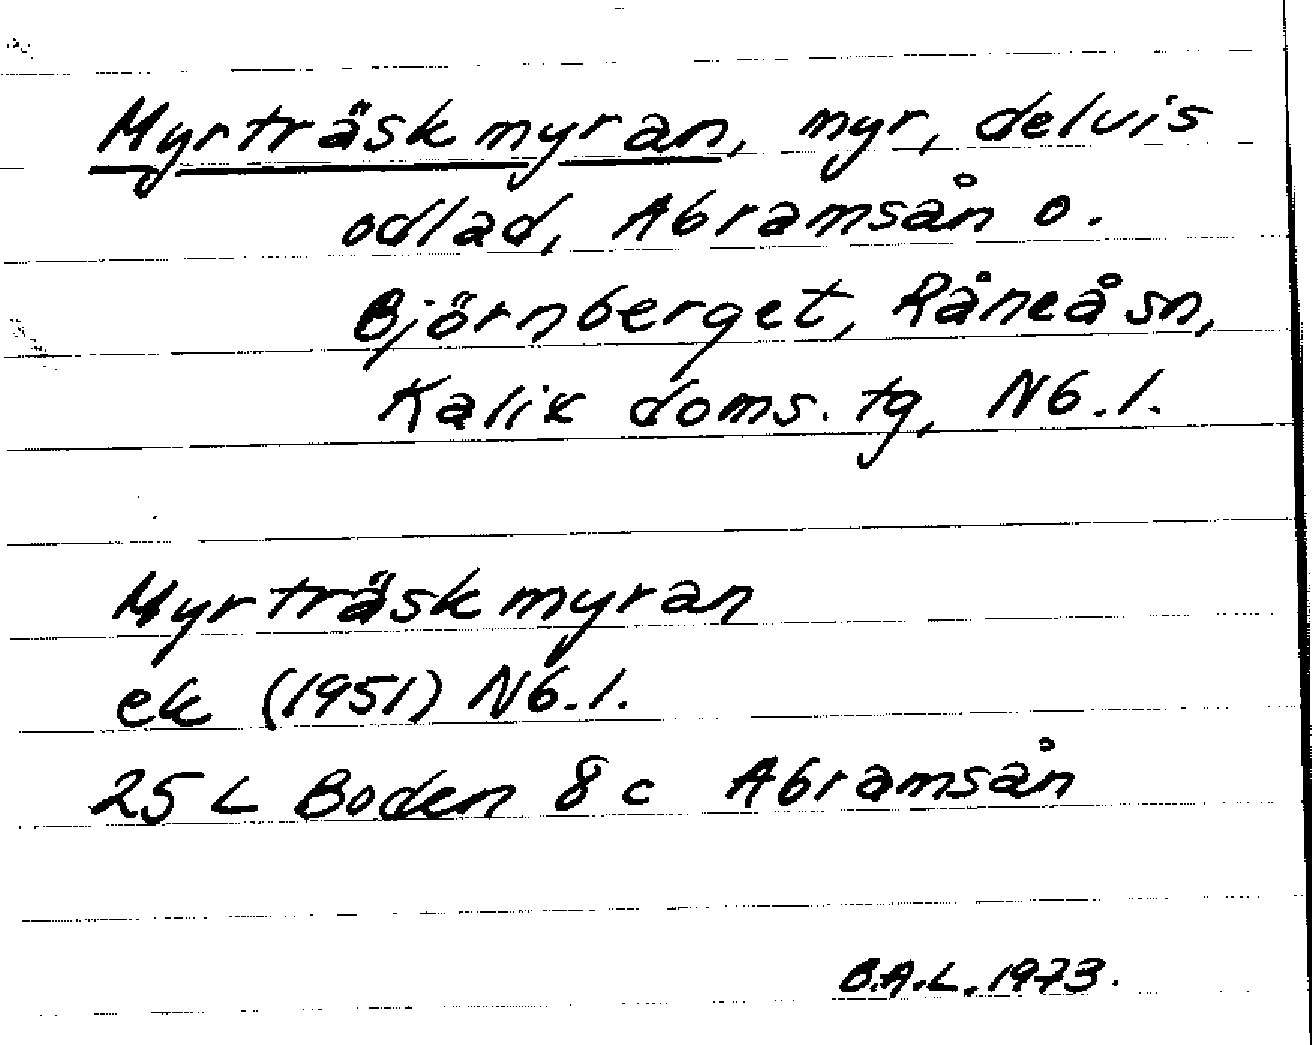 Myrträskmyran, myr, delvis
odlad, Abramsån o.
Björnberget, Råneå sn,
Kalix doms. tg, Nb. l.
Myrträskmyran
ek (1951) Nb. l.
25 L Boden 8 c Abramsån
B.A.L. 1973.